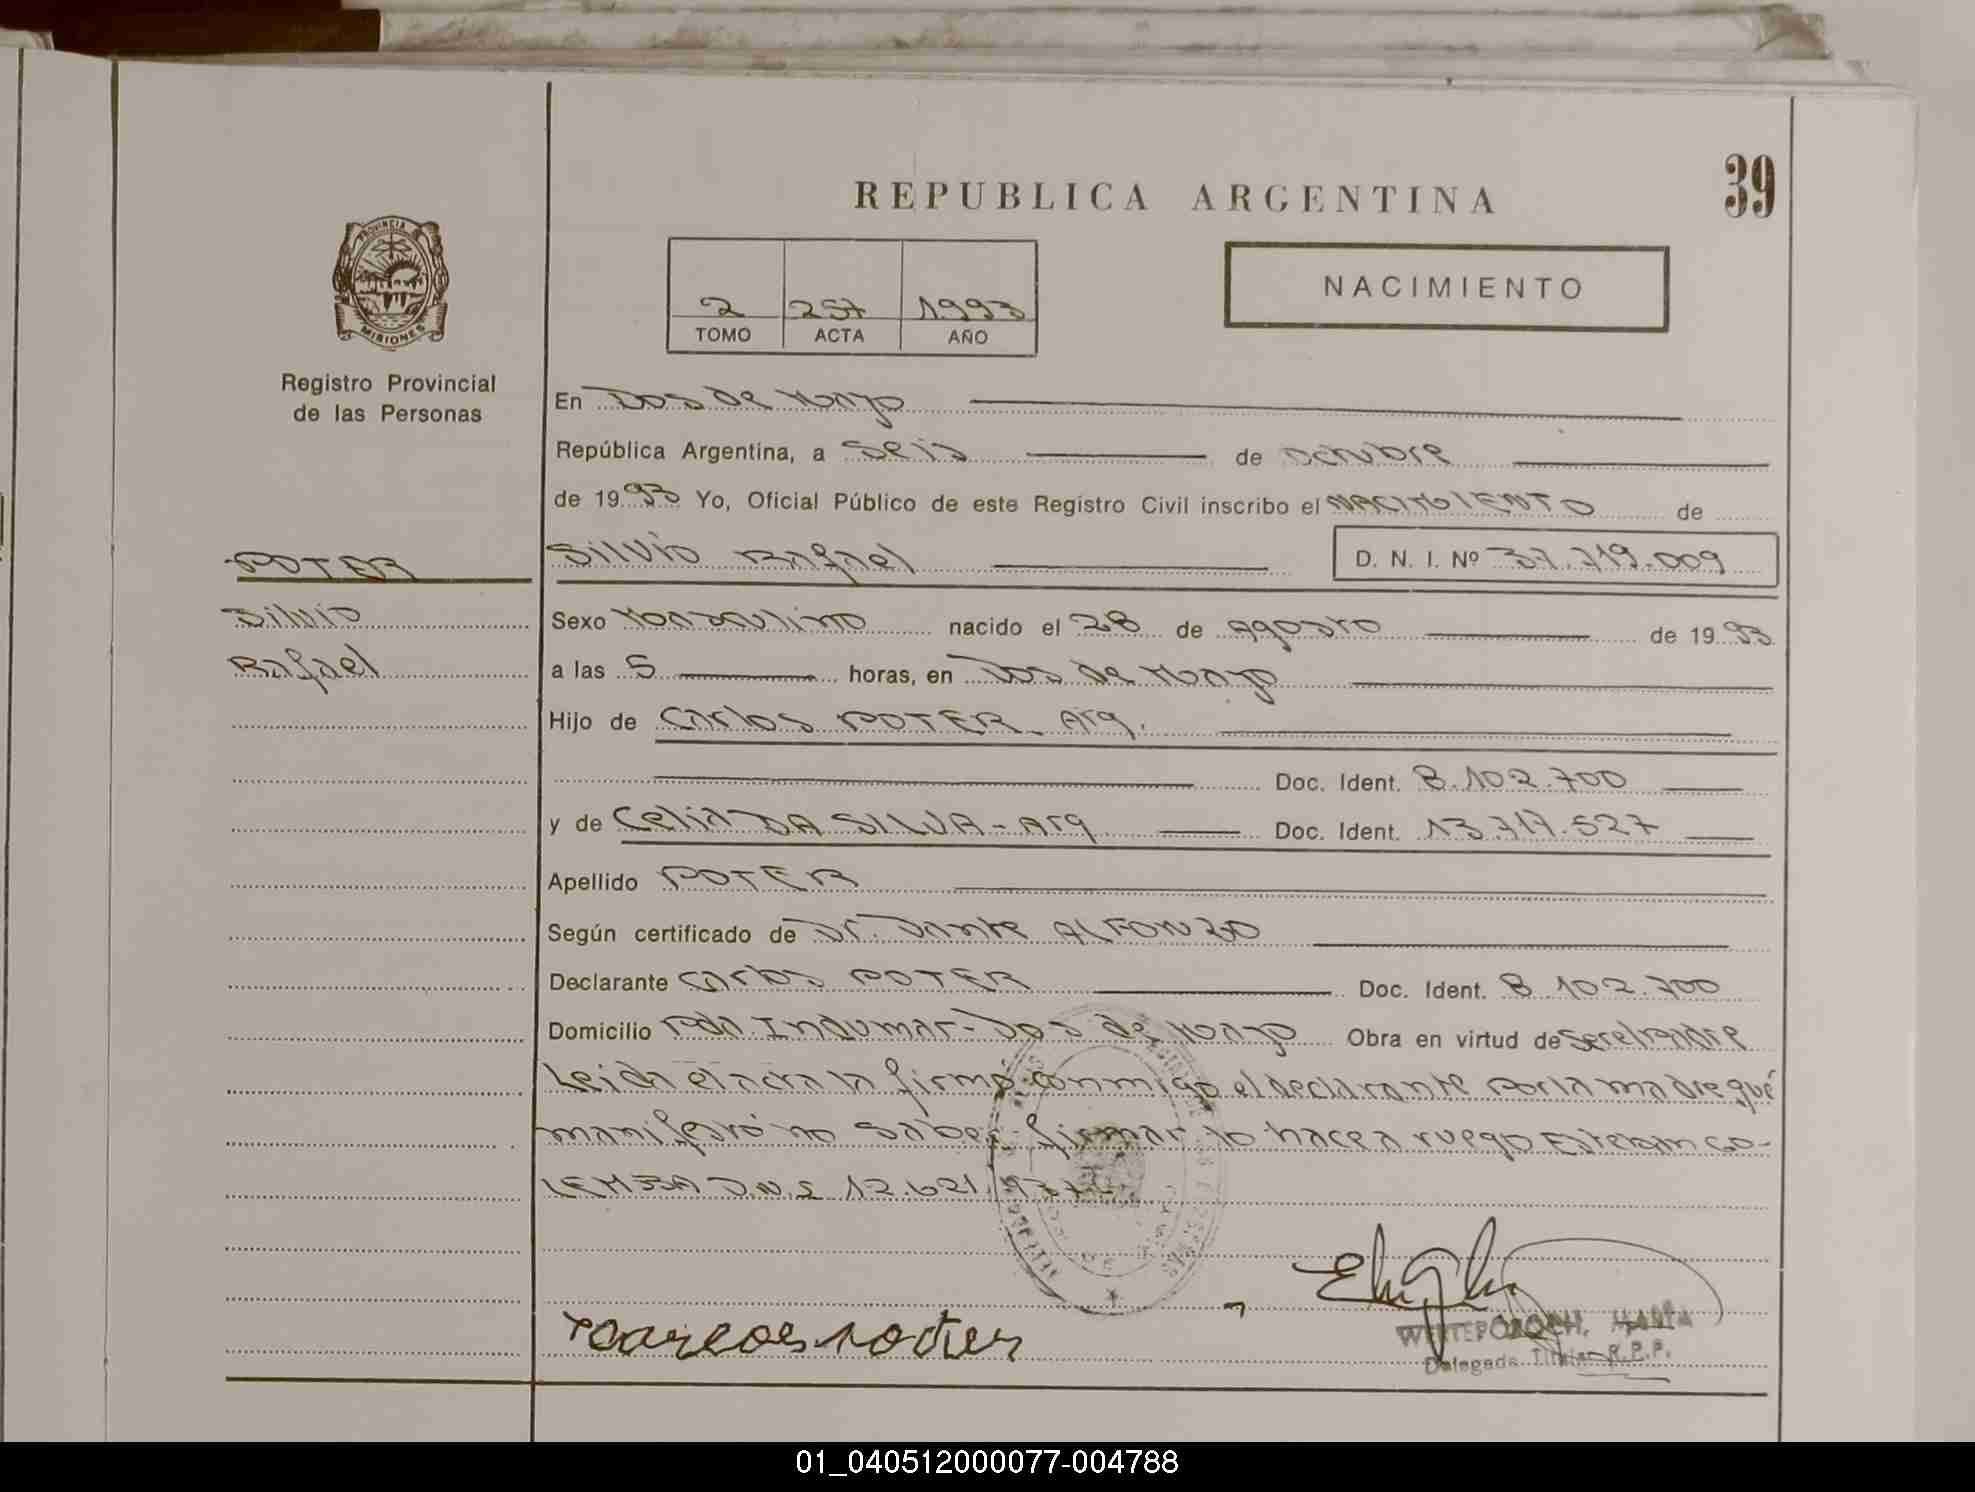 39
REPUBLICA ARGENTINA
PROVINCIA DE
MISIONES
Registro Provincial
de las Personas
2 257 1993
TOMO ACTA AÑO
NACIMIENTO
En Dos de Mayo
República Argentina, a Seis de octubre
de 1993 Yo, Oficial Público de este Registro Civil inscribo el NACIMIENTO de
POTER
Silvio Rafael D. N. I. Nº 37.719.009
Silvio
Rafael
Sexo Masculino nacido el 28 de Agosto de 1993
a las 5 horas, en Dos de Mayo
Hijo de Carlos POTER - Arg.
Doc. Ident. 8.102.700
y de Celia DA SILVA - Arg Doc. Ident. 13.717.527
Apellido POTER
Según certificado de Dr. Dante ALFONZO
Declarante Carlos POTER Doc. Ident. 8.102.700
Domicilio Pdo. Indumar - Dos de Mayo Obra en virtud de ser el padre
Leida el acta la firmó conmigo el declarante por la madre qué
manifestó no saber firmar lo hace a ruego Esteban GO-
LEMBA D.N.I 12.621.
Carlos Poter
Delegada Titular R.P.P.
01_040512000077-004788